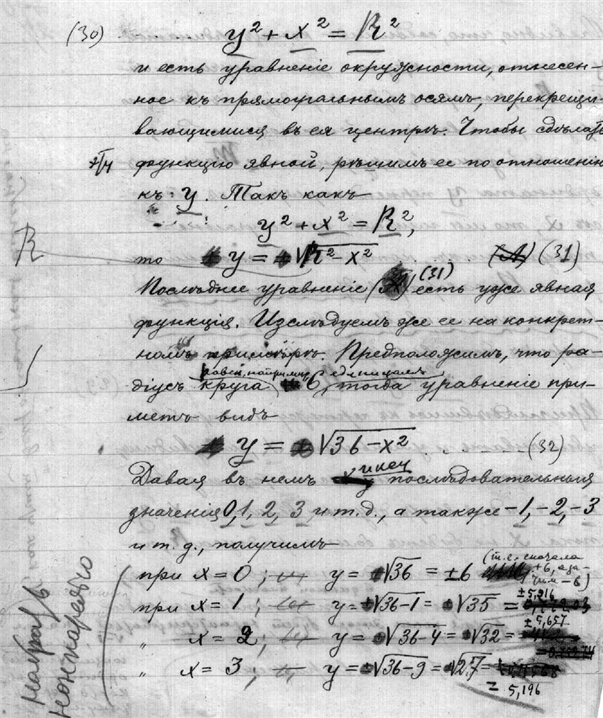 (30) y² + x² = R²
и есть уравненіе окружности, отнесен-
ное къ прямоугольнымъ осямъ, перекрещи-
вающимися въ ея центрѣ. Чтобы сдѣлать
функцію явной, рѣшимъ ее по отношенію
къ y. Такъ какъ
y² + x² = R²,
R
то y = ±√R² - x² (31)
Послѣднее уравненіе (31) есть уже явная
функція. Изслѣдуемъ же ее на конкрет-
номъ примѣрѣ. Предположимъ, что ра-
діусъ круга равен, например, 6 единицамъ, тогда уравненіе при-
метъ видъ
y = ±√36 - x² (32)
Давая въ немъ x-у последовательныя
значенія 0, 1, 2, 3 и т.д., а также -1, -2, -3
и т.д., получимъ
при x = 0; y = ±√36 = ±6 (т.е. сначала +6, а за- тѣм -6)
при x = 1; y = ±√36-1 = ±√35 = ±5,916
„ x = 2; y = ±√36-4 = ±√32 = ±5,657
„ x = 3; y = ±√36-9 = ±√27 = 5,196
набрать
нонпарелью